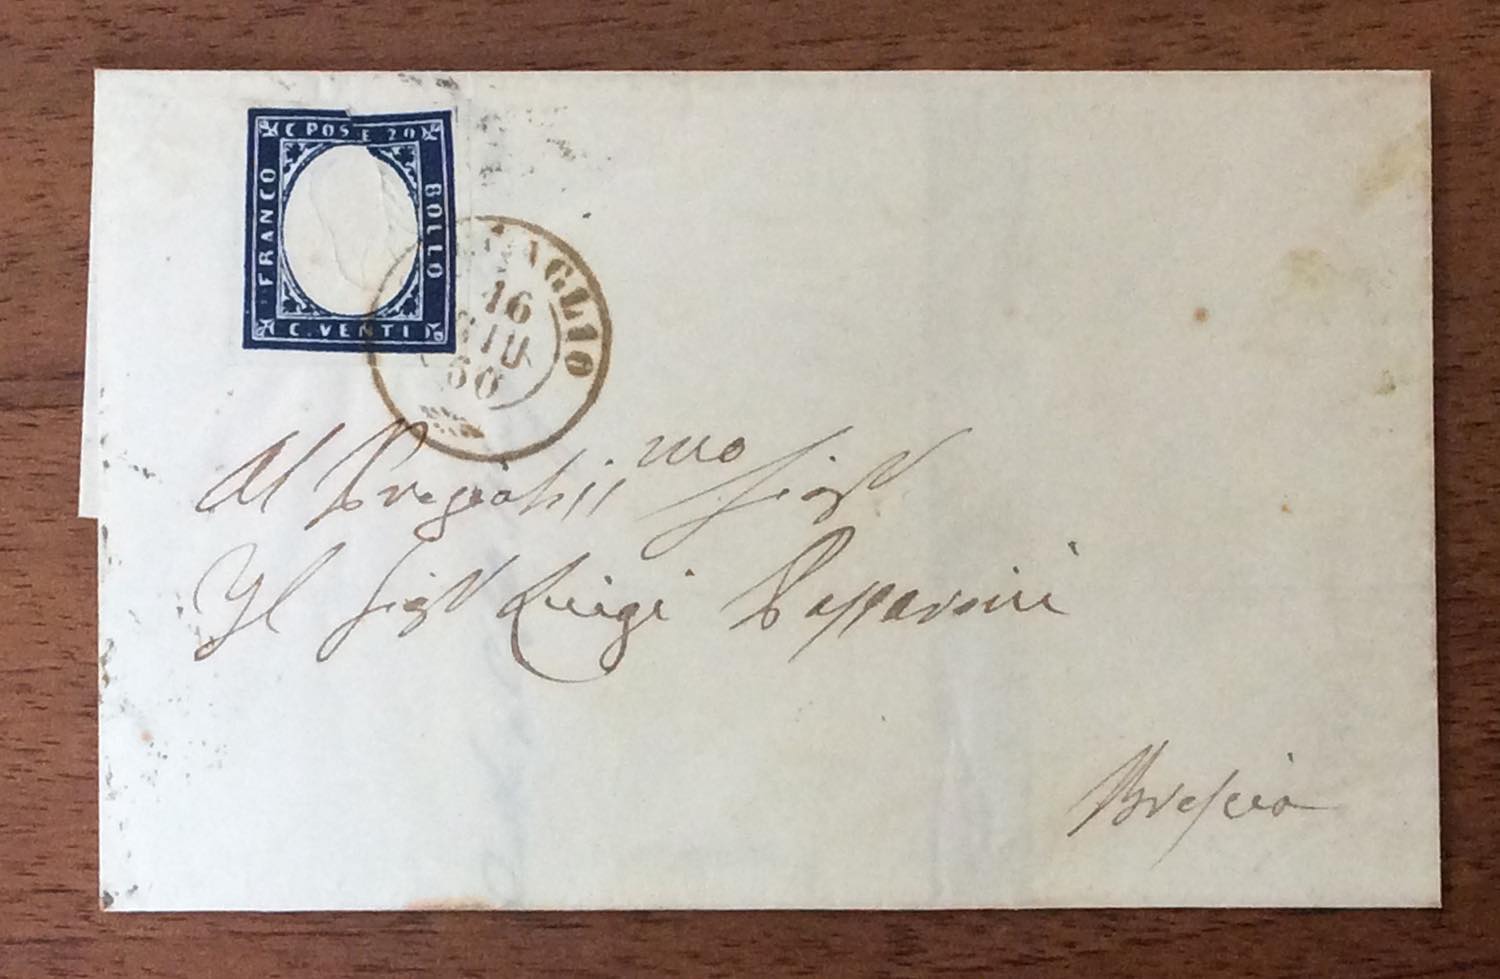 C POSTE 20
FRANCO
BOLLO
C. VENTI
16
GIU
60
Al Pregiatiss mo Sigr
Il Sigr Luigi
Brescia